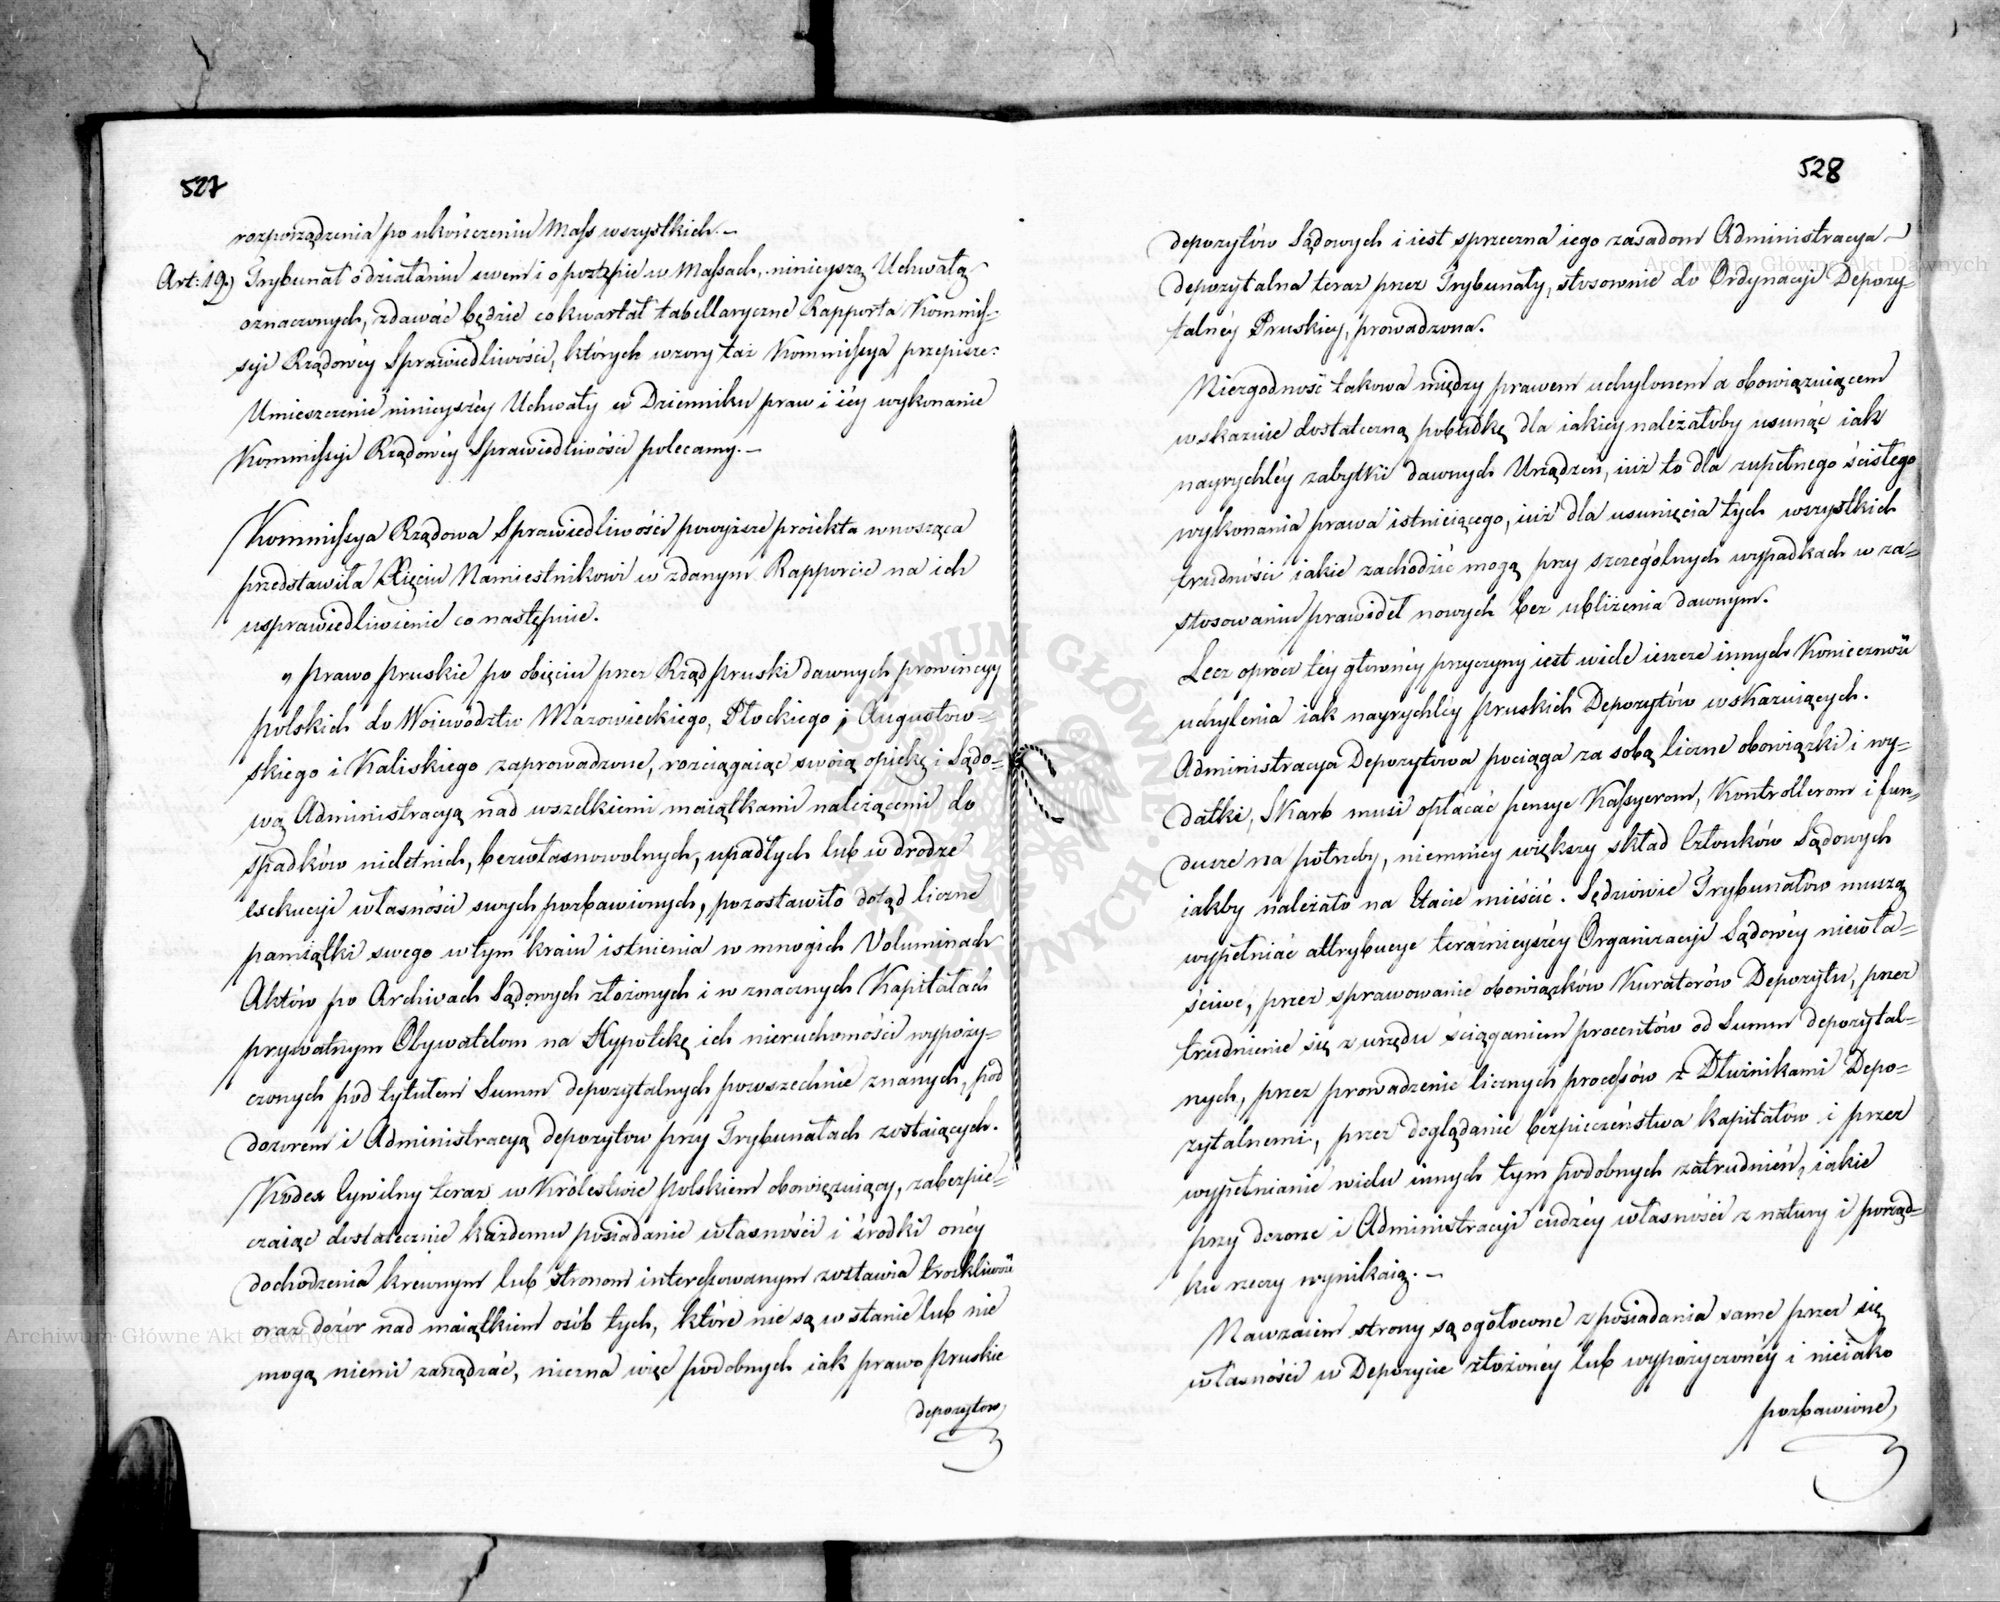 527
rozporządzenia po ukończeniu Mass wszystkich. –
Art: 19.) Trybunał o działaniu swem i o postępie w Massach, ninieyszą Uchwałą
oznaczonych, zdawać będzie co kwartał tabellaryczne Rapporta Kommis-
syi Rządowéy Sprawiedliwości, których wzory taż Kommissya przepisze.
Umieszczenie ninieyszéy Uchwały w Dzienniku praw i iéy wykonanie
Kommissyi Rządowéy Sprawiedliwości polecamy. –
Kommissya Rządowa Sprawiedliwości powyższe proiekta wnosząca
przedstawiła Xięciu Namiestnikowi w zdanym Rapporcie na ich
usprawiedliwienie co następuie.
„ Prawo pruskie po obięciu przez Rząd pruski dawnych prowincyy
polskich do Woiewództw Mazowieckiego, Płockiego, Augustow-
skiego i Kaliskiego zaprowadzone, rozciągaiąc swoią opiekę i Sądo-
wą Administracyą nad wszelkiemi maiątkami należącemi do
spadków nieletnich, bezwłasnowolnych, upadłych lub w drodze
exekucyi własności swych pozbawionych, pozostawiło dotąd liczne
pamiątki swego w tym kraiu istnienia w mnogich Voluminach
Aktów po Archivach Sądowych złożonych i w znacznych Kapitałach
prywatnym Obywatelom na Hypotekę ich nieruchomości wypoży-
czonych pod tytułem Summ depozytalnych powszechnie znanych, pod
dozorem i Administracyą depozytow przy Trybunałach zostaiących.
Kodex Cywilny teraz w Królestwie polskiem obowięzuiący, zabezpie-
czaiąc dostatecznie każdemu posiadanie własności i środki onéy
dochodzenia krewnym lub stronom interessowanym zostawia troskliwość
oraz dozór nad maiątkiem osób tych, które nie są w stanie lub nie
mogą niemi zarządzać, niezna więc podobnych iak prawo pruskie
depozytow
528
depozytów Sądowych i iest sprzeczna iego zasadom Administracya
depozytalna teraz przez Trybunały, stosownie do Ordynacyi Depozy-
talnéy Pruskiey, prowadzona.
Niezgodność takowa między prawem uchylonem a obowiązuiącem
wskazuie dostateczną pobudkę dla iakiey należałoby usunąć iak
nayrychléy zabytki dawnych Urządzeń, iuż to dla zupełnego ścisłego
wykonania prawa istnieiącego, iuż dla usunięcia tych wszystkich
trudności iakie zachodzić mogą przy szczególnych wypadkach w za-
stosowaniu prawideł nowych bez ubliżenia dawnym.
Lecz oprócz téy głownéy przyczyny iest wiele ieszcze innych Konieczność
uchylenia iak nayrychléy pruskich Depozytów wskazuiących.
Administracya Depozytowa pociąga za sobą liczne obowiązki i wy-
datki, Skarb musi opłacać pensye Kassyerom, Kontrollerom i fun-
dusze na potrzeby, niemniey większy skład Członków Sądowych
iakby należało na Etacie mieścić. Sędziowie Trybunałów muszą
wypełniać attrybucye teraźnieyszéy Organizacyi Sądowéy niewła-
ściwe, przez sprawowanie obowiązków Kuratorów Depozytu, przez
trudnienie się z urzędu ściąganiem procentów od Summ depozytal-
nych, przez prowadzenie licznych procesów z Dłużnikami Depo-
zytalnemi, przez doglądanie bezpieczeństwa kapitałów i przez
wypełnianie wielu innych tym podobnych zatrudnień, iakie
przy dozorze i Administracyi cudzéy własności z natury i porząd-
ku rzeczy wynikaią. –
Nawzaiem strony są ogołocone z posiadania same przez się
własności w Depozycie złożonéy lub wypożyczonéy i nieiako
pozbawione
Archiwum Główne Akt Dawnych
Archiwum Główne Akt Dawnych
ARCHIWUM GŁÓWNE AKT DAWNYCH